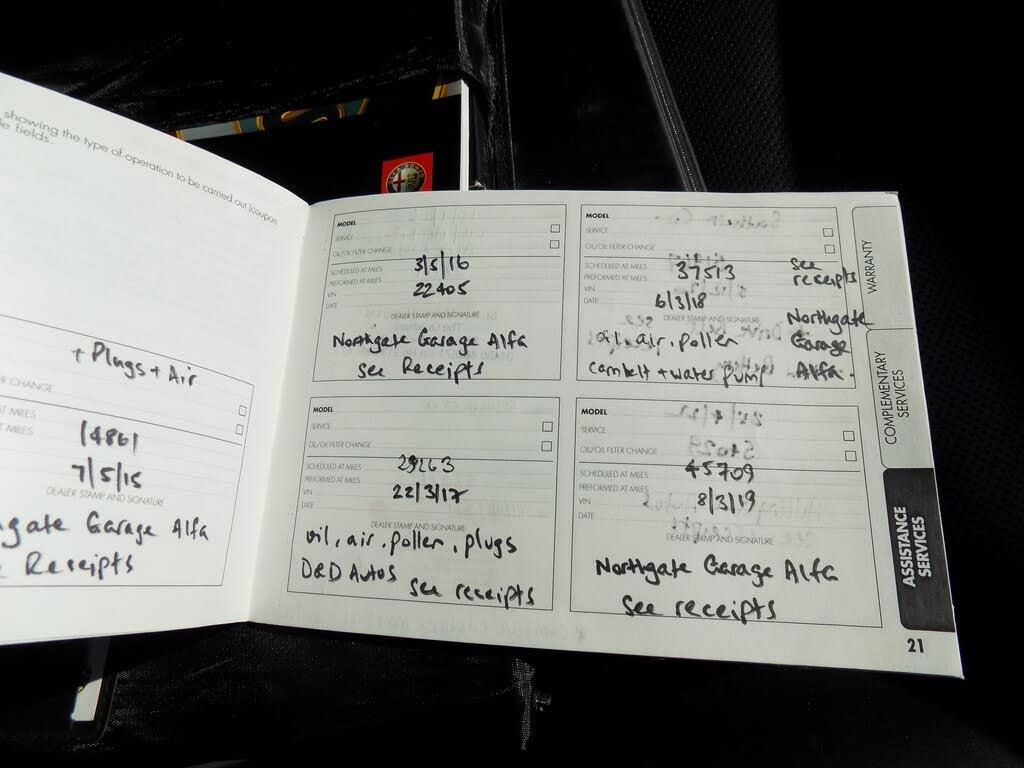 showing the type of operation to be carried out (coupon
le fields.
+ Plugs + Air
R CHANGE
AT MILES
14861
T MILES
7/5/15
DEALER STAMP AND SIGNATURE
gate Garage Alfa
Receipts
MODEL
SERVICE
OIL/OIL FILTER CHANGE
SCHEDULED AT MILES
3/5/16
PREFORMED AT MILES
VIN
22405
DATE
DEALER STAMP AND SIGNATURE
Northgate Garage Alfa
see Receipts
MODEL
SERVICE
OIL/OIL FILTER CHANGE
SCHEDULED AT MILES
37513
see
receipts
PREFORMED AT MILES
VIN
DATE
6/3/18
DEALER STAMP AND SIGNATURE
Northgate
oil, air, pollen
Garage
cambelt + water pump
Alfa.
MODEL
SERVICE
OIL/OIL FILTER CHANGE
SCHEDULED AT MILES
29263
PREFORMED AT MILES
VIN
22/3/17
DATE
DEALER STAMP AND SIGNATURE
oil, air, pollen, plugs
D&D Autos see receipts
MODEL
SERVICE
OIL/OIL FILTER CHANGE
SCHEDULED AT MILES
45709
PREFORMED AT MILES
VIN
8/3/19
DATE
DEALER STAMP AND SIGNATURE
Northgate Garage Alfa
see receipts
WARRANTY
COMPLEMENTARY
SERVICES
ASSISTANCE
SERVICES
21